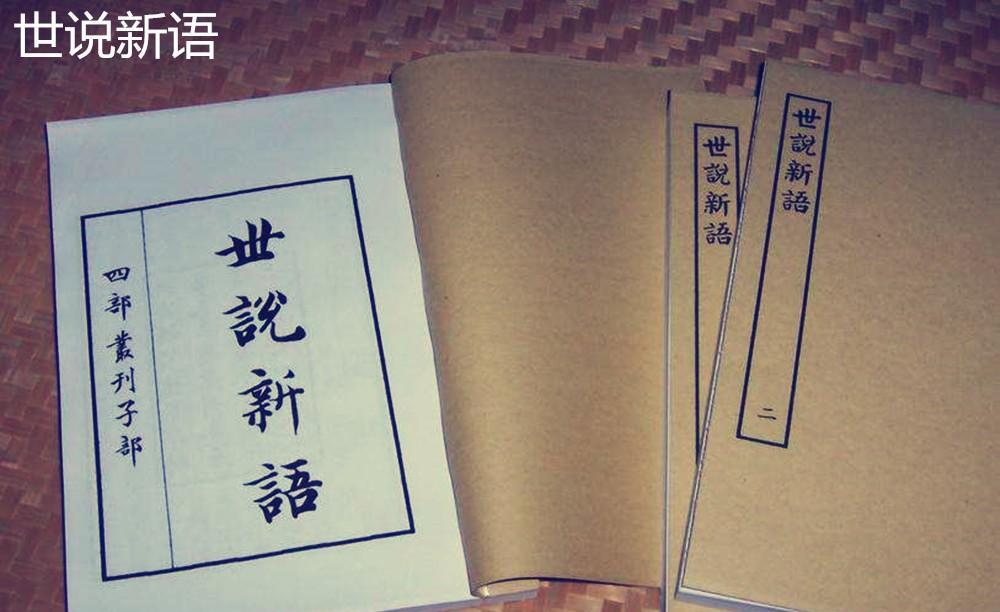 世说新语
世說新語
四部叢刊子部
世說新語
世說新語
二